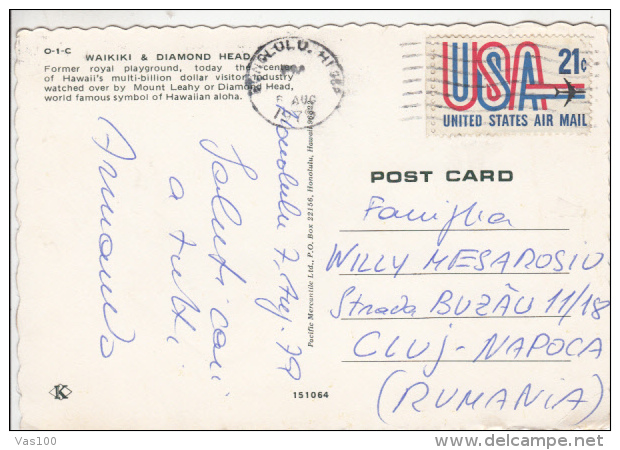 O-1-C
WAIKIKI & DIAMOND HEAD
Former royal playground, today the center
of Hawaii's multi-billion dollar visitor industry
watched over by Mount Leahy or Diamond Head,
world famous symbol of Hawaiian aloha.
HONOLULU, HI
AUG
USA 21c
UNITED STATES AIR MAIL
POST CARD
Honolulu 7. Aug. 79
Saluti cari
a tutti
Armando
Pacific Mercantile Ltd., P.O. Box 22156, Honolulu, Hawaii
Famiglia
WILLY MESAROSIU
Strada BUZĂU 11/18
CLUJ-NAPOCA
(RUMANIA)
K
151064
Vas100
delcampe.net